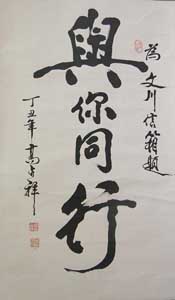 為文川信箱題
與你同行
丁丑年高占祥